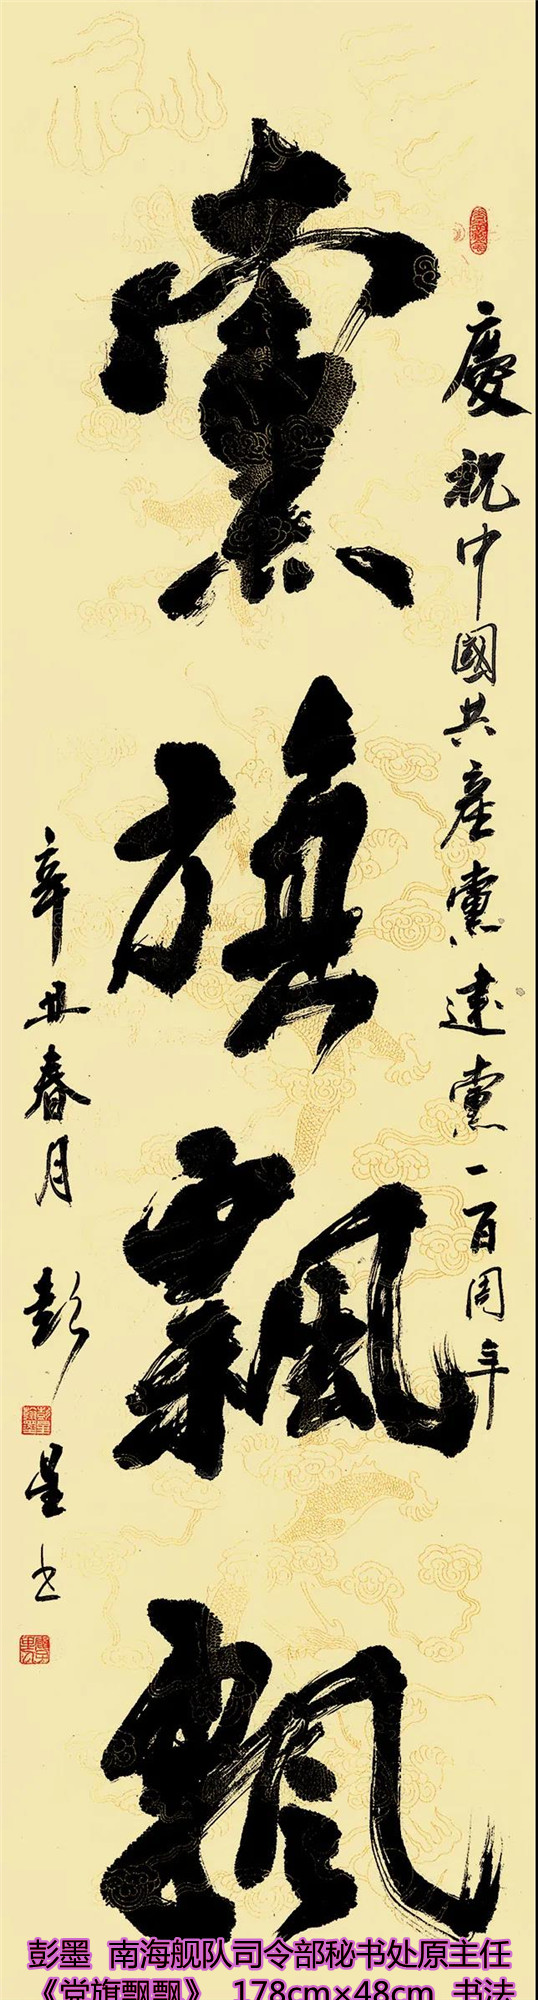 慶祝中國共産黨建黨一百周年
黨旗飄飄
辛丑春月 彭星书
彭墨 南海舰队司令部秘书处原主任
《党旗飘飘》 178cm×48cm 书法